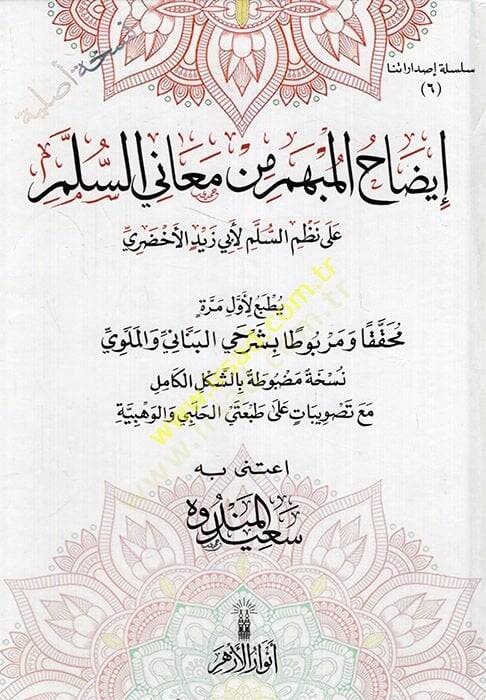 سلسلة إصداراتنا
(٦)
نسخة أصلية
إيضاح المبهم من معاني السلم
على نظم السلم لأبي زيد الأخضري
يطبع لأول مرة
محققا ومربوطا بشرحي البناني والملوي
نسخة مضبوطة بالشكل الكامل
مع تصويبات على طبعتي الحلبي والوهبية
اعتنى به
سعيد المندوه
أنوار الأزهر